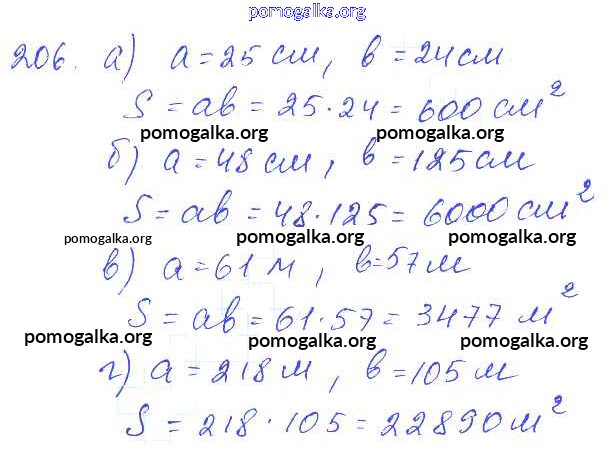 pomogalka.org
206. а) a = 25 см, в = 24 см
S = ав = 25 · 24 = 600 см²
pomogalka.org pomogalka.org
б) a = 48 см, в = 125 см
S = ав = 48 · 125 = 6000 см²
pomogalka.org pomogalka.org pomogalka.org
в) a = 61 м, в = 57 м
S = ав = 61 · 57 = 3477 м²
pomogalka.org pomogalka.org pomogalka.org
г) a = 218 м, в = 105 м
S = 218 · 105 = 22890 м²